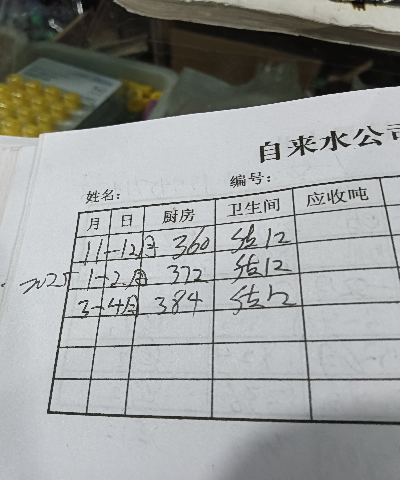 自来水公司
姓名： 编号：
月 日 厨房 卫生间 应收吨
11-12月 360 估12
2025 1-2月 372 估12
3-4月 384 估12